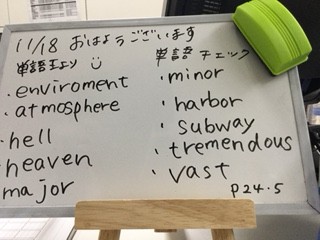 11/18 おはようございます
単語王より
・enviroment
・atmosphere
・hell
heaven
major
単語チェック
・minor
・harbor
・subway
・tremendous
・vast
P24.5